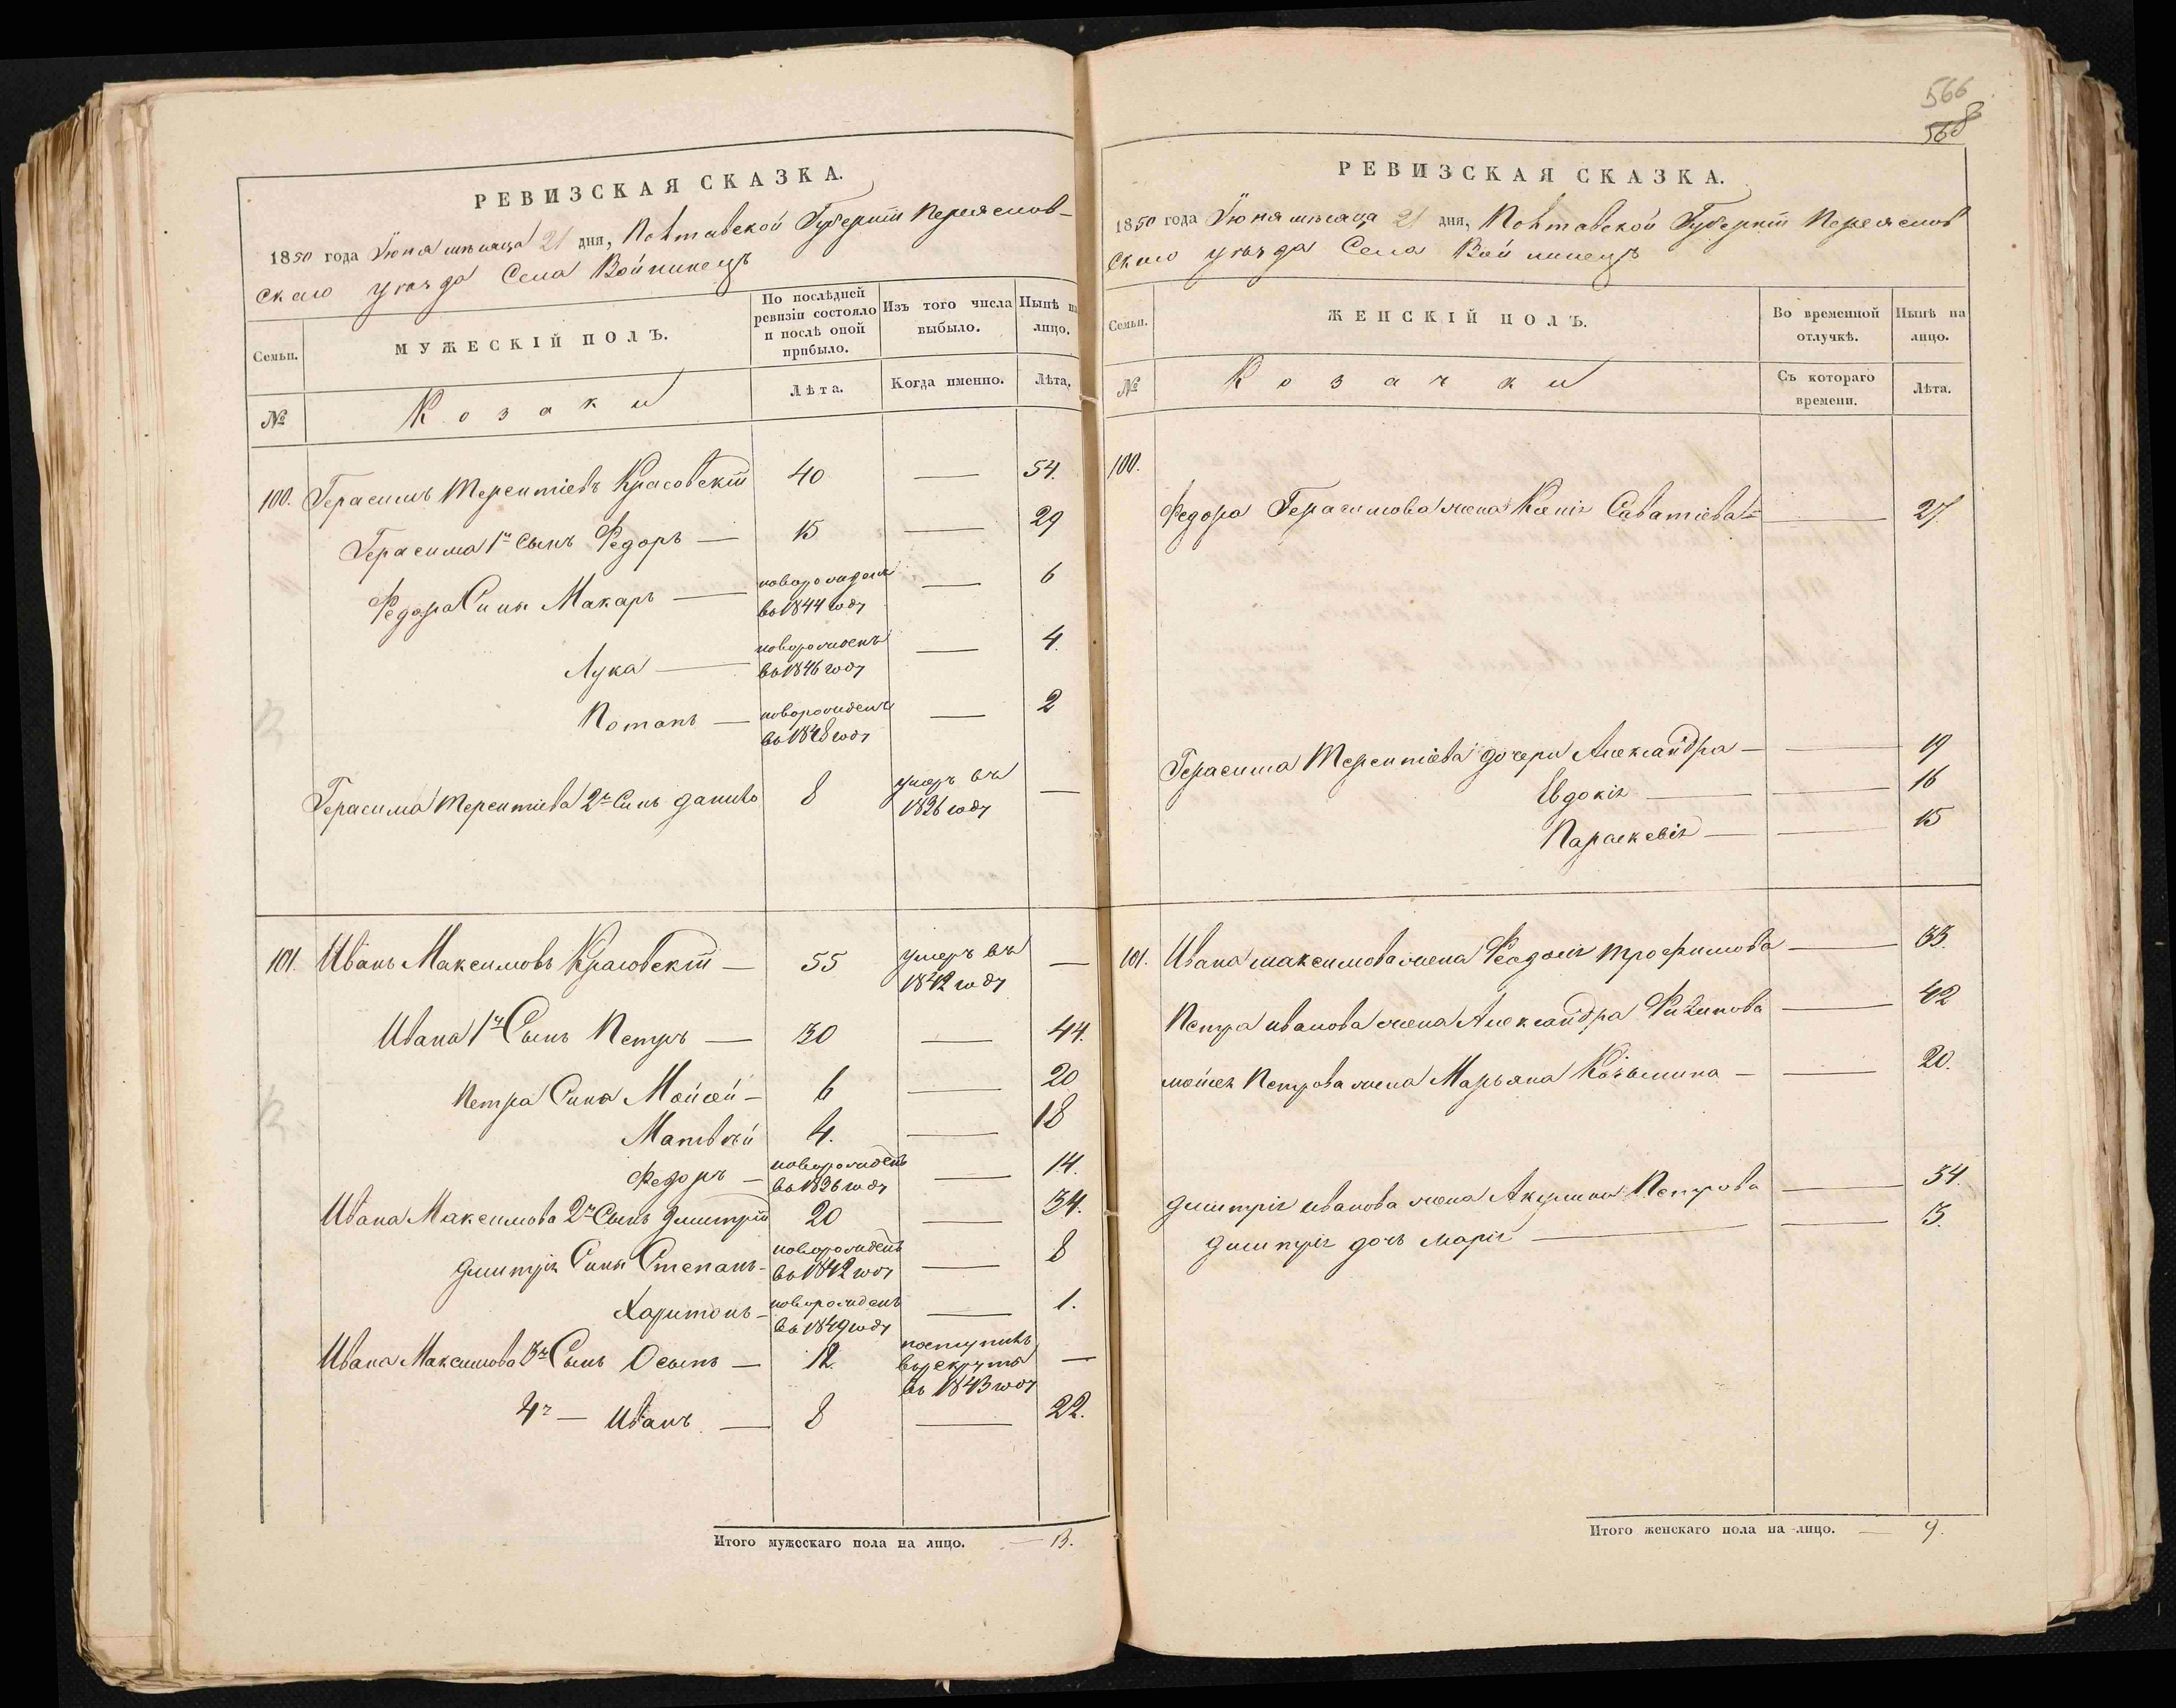 РЕВИЗСКАЯ СКАЗКА.
1850 года Іюня мѣсяца 21 дня, Полтавской Губерніи Переяслов-
скаго уѣзда Села Войнинецъ
Семьи.
МУЖЕСКІЙ ПОЛЪ.
По послѣдней ревизіи состояло и послѣ оной прибыло.
Изъ того числа выбыло.
Нынѣ на лицо.
№
Козаки
Лѣта.
Когда именно.
Лѣта.
100. Герасимъ Терентіевъ Красовскій 40 — 54.
Герасима 1й Сынъ Федоръ — 15 — 29
Федора Сыны Макаръ — новорожденъ въ 1844 году — 6
Лука — новорожденъ въ 1846 году — 4.
Потапъ — новорожденъ въ 1848 году — 2
Герасима Терентіева 2й Сынъ Данило 8 умеръ въ 1836 году —
101. Иванъ Максимовъ Красовскій — 55 умеръ въ 1842 году —
Ивана 1й Сынъ Петръ — 30 — 44.
Петра Сыны Мойсей — 6 — 20
Матвѣй 4. — 18
Федоръ — новорожденъ въ 1836 году — 14.
Ивана Максимова 2й Сынъ Дмитрій 20 — 34.
Дмитрія Сыны Степанъ — новорожденъ въ 1842 году — 8
Харитонъ — новорожденъ въ 1849 году — 1.
Ивана Максимова 3й Сынъ Осипъ — 12. поступилъ в рекруты въ 1843 году —
4й — Иванъ — 8 — 22.
Итого мужескаго пола на лицо. — 13.
566
568
РЕВИЗСКАЯ СКАЗКА.
1850 года Іюня мѣсяца 21 дня, Полтавской Губерніи Переяслов
скаго уѣзда Села Войнинецъ
Семьи.
ЖЕНСКІЙ ПОЛЪ.
Во временной отлучкѣ.
Нынѣ на лицо.
№
Козачки
Съ котораго времени.
Лѣта.
100.
Федора Герасимова жена Ксенія Саватіева — 27.
Герасима Терентіева дочери Александра — — 19
Евдокія — — 16
Параскевія — — 15
101. Ивана Максимова жена Феодосія Трофимова — 53.
Петра Иванова жена Александра — 42
Мойсея Петрова жена Марьяна Козьмина — — 20.
Дмитрія Иванова жена Акулина Петрова — 34.
Дмитрія дочь Марія — — 13.
Итого женскаго пола на лицо. — 9.